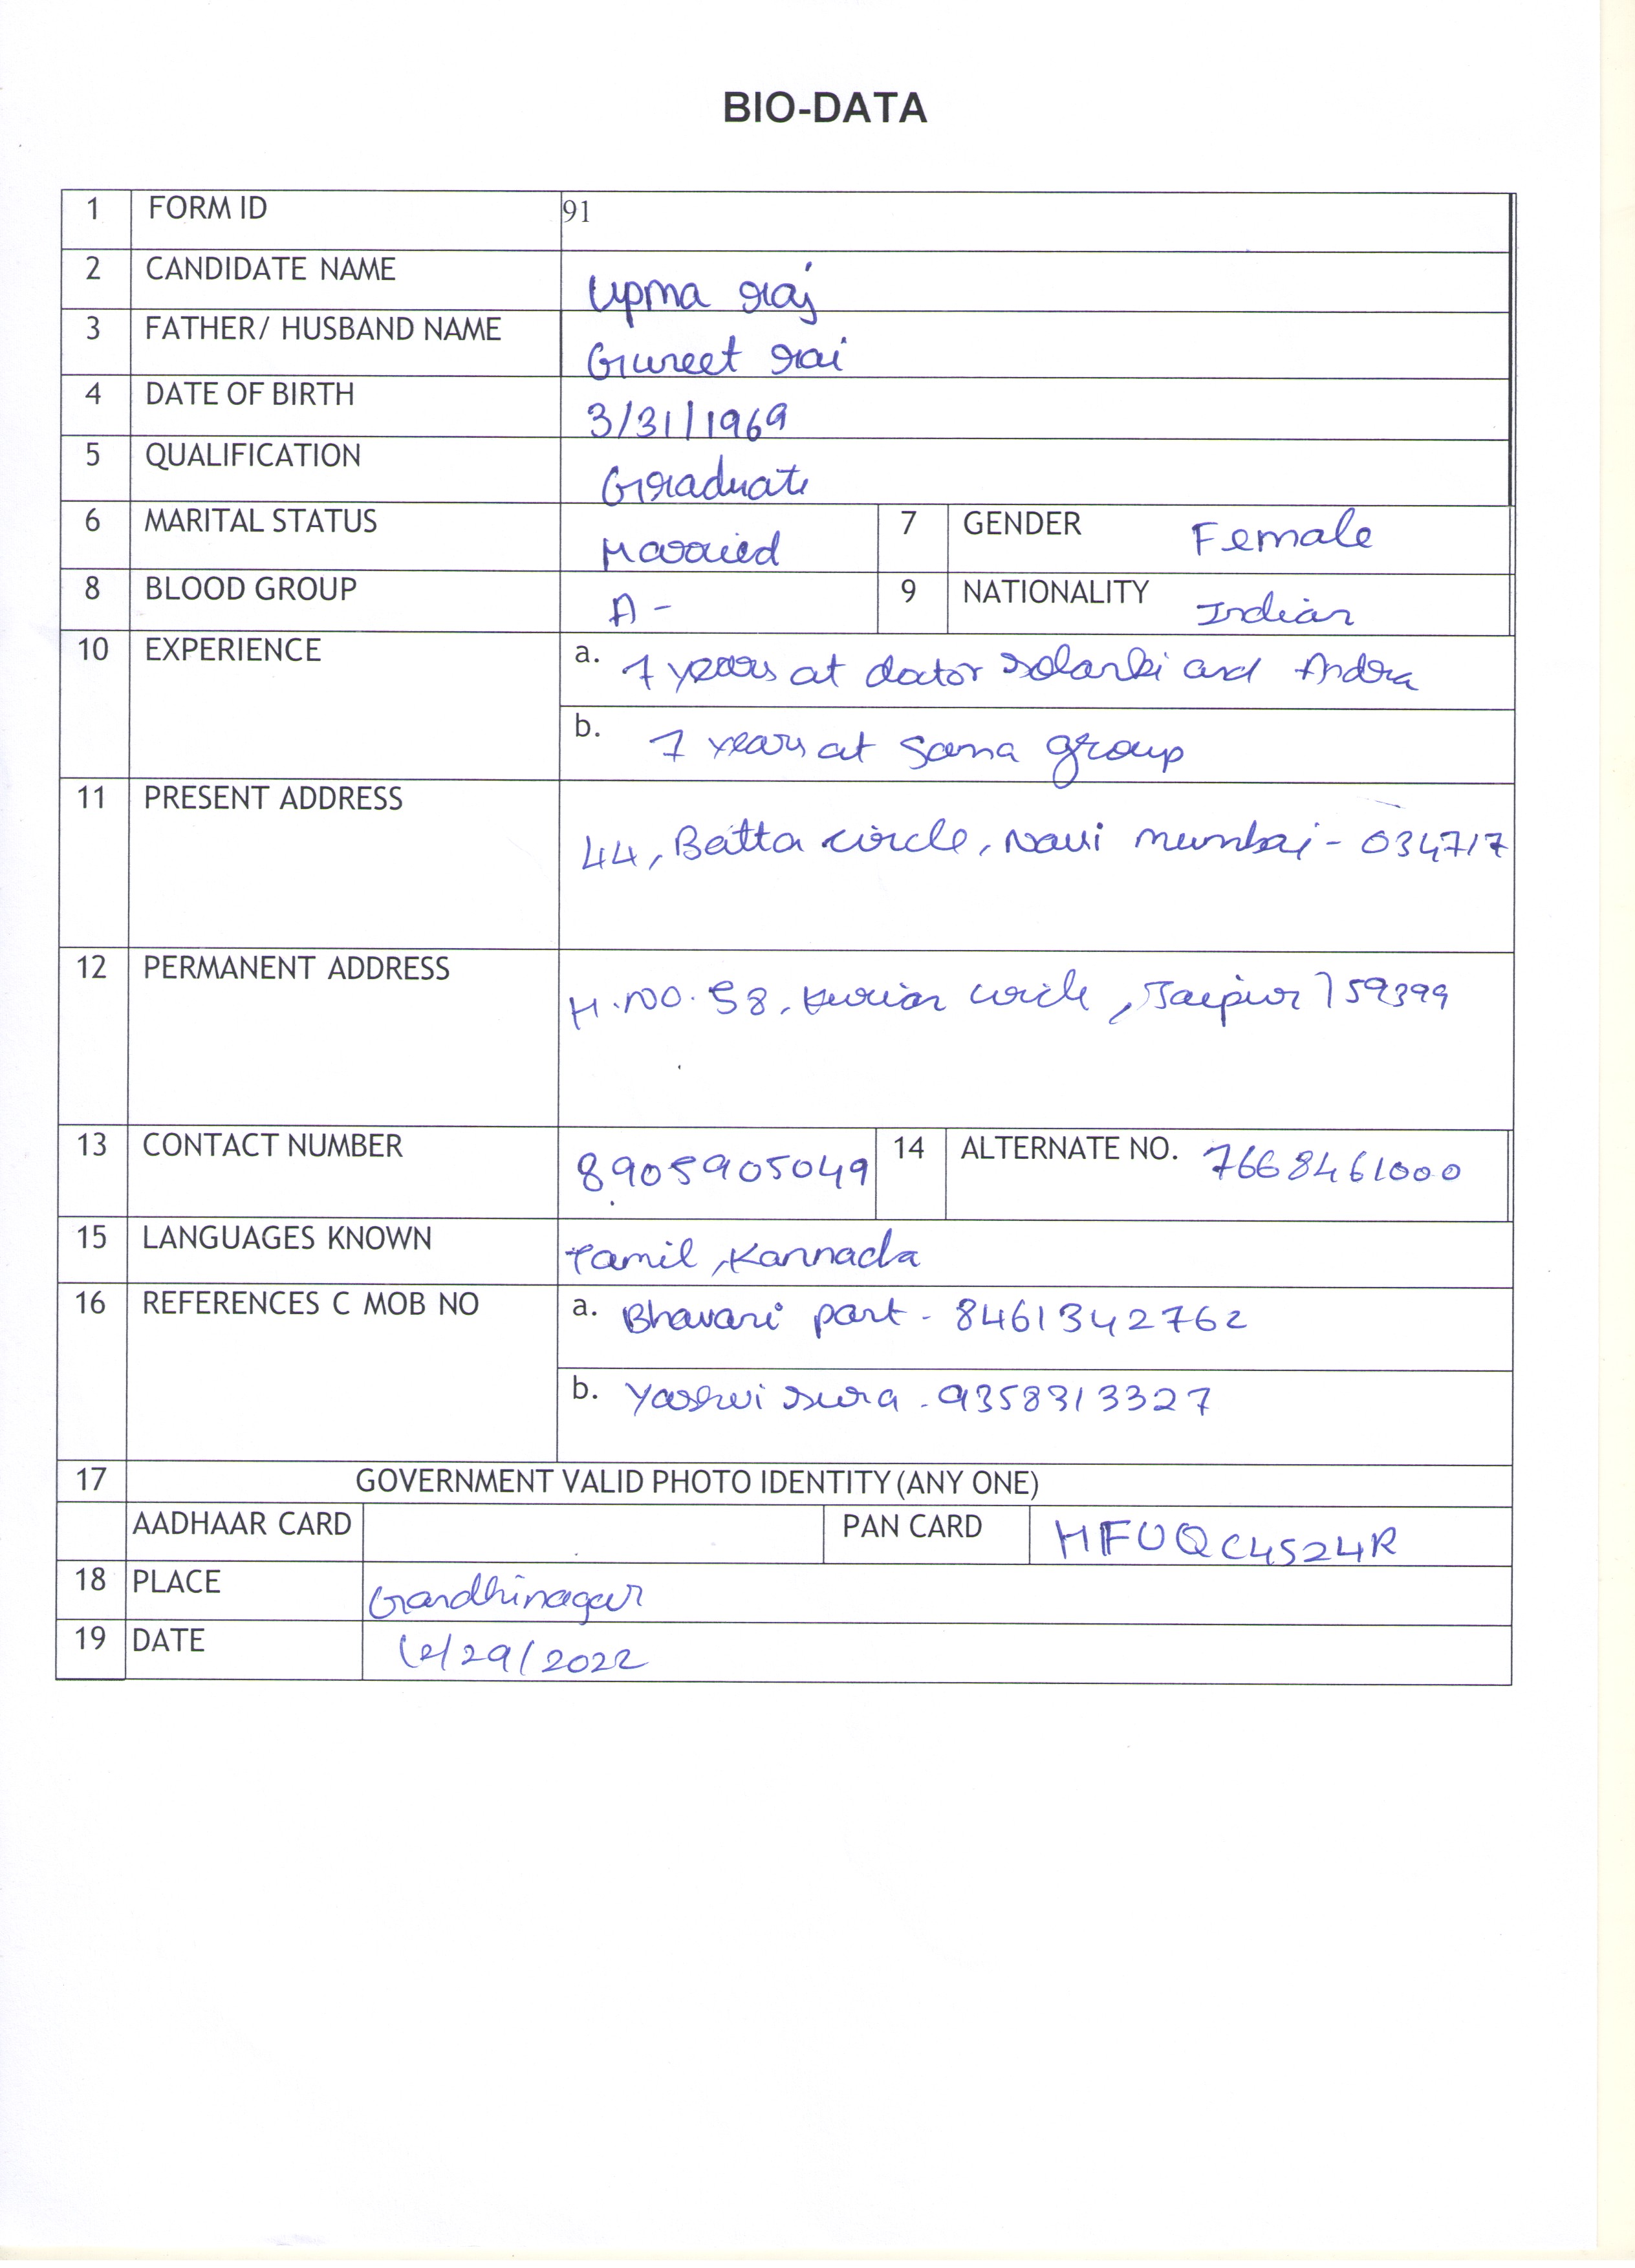 BIO-DATA
1 FORM ID 91
2 CANDIDATE NAME Upma raj
3 FATHER/ HUSBAND NAME Gureet rai
4 DATE OF BIRTH 3/31/1969
5 QUALIFICATION Graduate
6 MARITAL STATUS Married 7 GENDER Female
8 BLOOD GROUP A - 9 NATIONALITY Indian
10 EXPERIENCE a. 7 years at dator solanki and Andra
b. 7 years at Sama group
11 PRESENT ADDRESS 44, Batta circle, Navi mumbai - 034717
12 PERMANENT ADDRESS H.NO. 58, Kurian circle, Jaipur 759399
13 CONTACT NUMBER 8905905049 14 ALTERNATE NO. 7668461000
15 LANGUAGES KNOWN Tamil, Kannada
16 REFERENCES C MOB NO a. Bhavani part - 8461342762
b. Yashvi sura - 9358313327
17 GOVERNMENT VALID PHOTO IDENTITY (ANY ONE)
AADHAAR CARD PAN CARD HFUQC4524R
18 PLACE Gandhinagar
19 DATE 12/29/2022